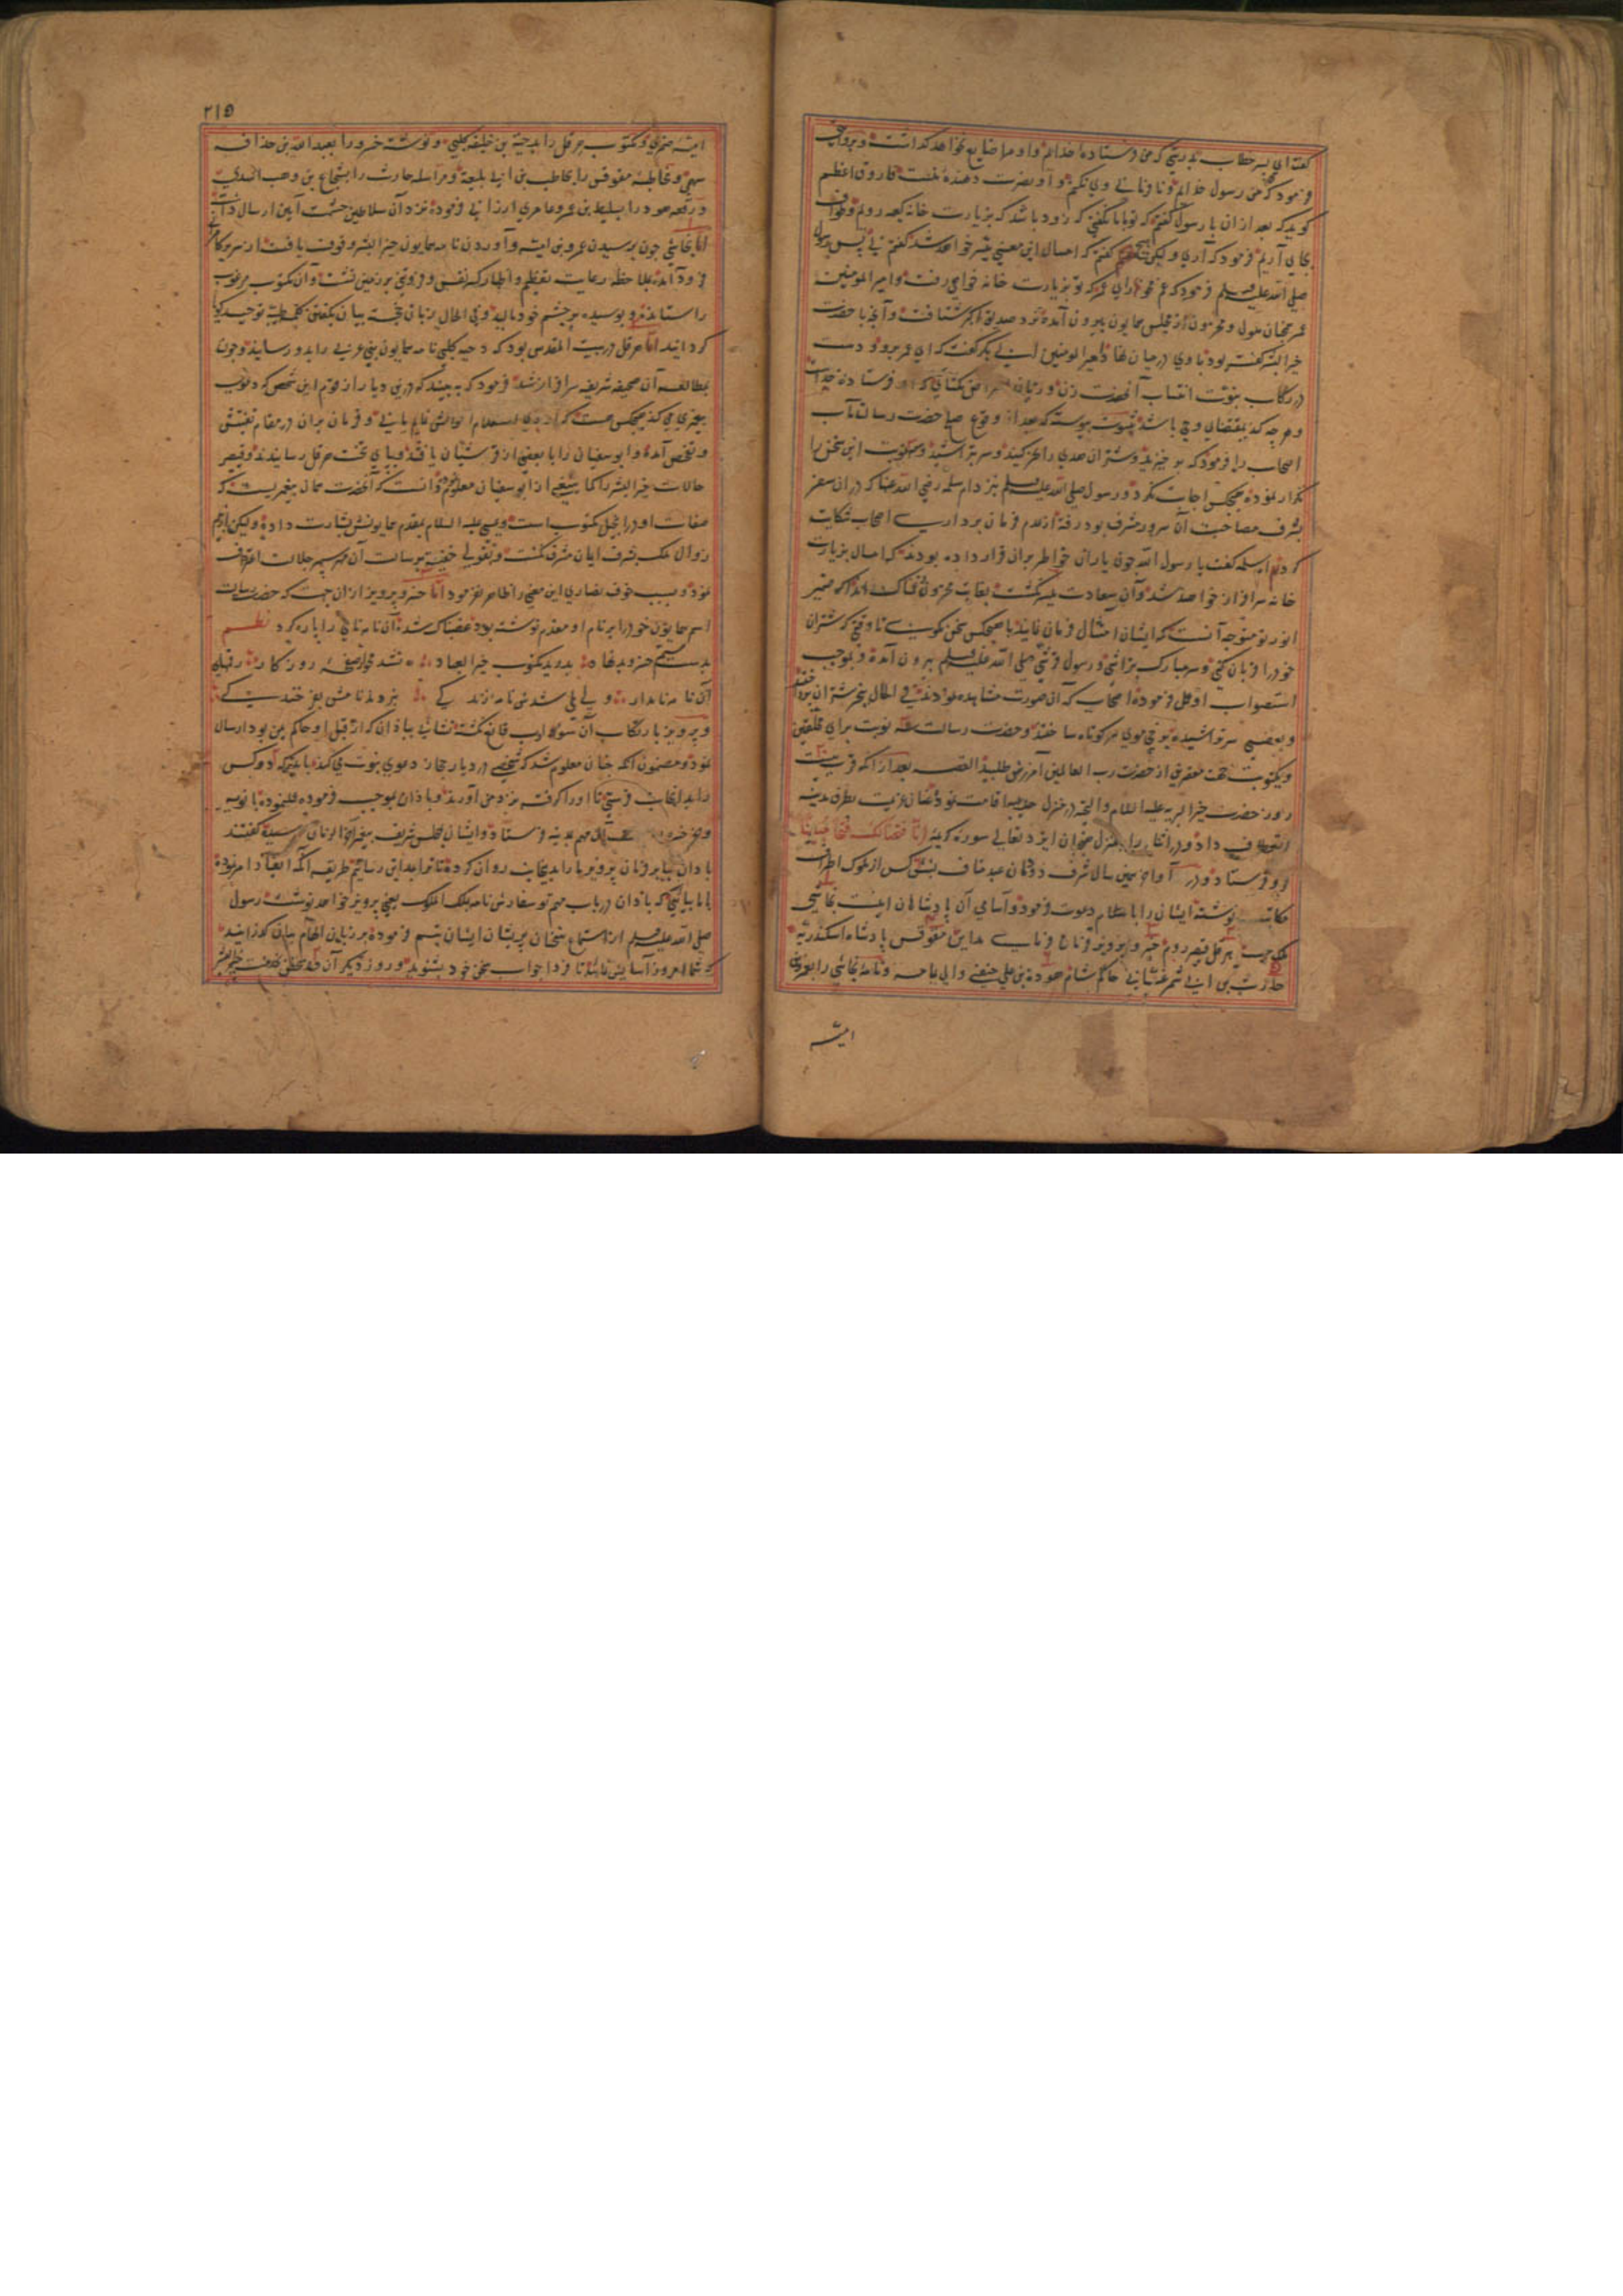 گفت ای پسر خطاب بدرستی که من فرستاده خدایم و او مرا ضایع نخواهد گذاشت و بروایتی
فرمود که من رسول خدایم و نافرمانی وی نکنم و او نصرت دهنده منست فاروق اعظم
گوید که بعد از ان با رسول گفتم که تو با ما نگفتی که زود باشد که بزیارت خانه کعبه رویم و طواف
بجای آریم فرمود که آری ولیکن هیچ گفتم که امسال این معنی میسر خواهد شد گفتم نی پس رسول
صلی الله علیه وسلم فرمود که غم مخور ای عمر که تو بزیارت خانه خواهی رفت و امیر المومنین
عمر همچنان ملول و محزون از مجلس همایون بیرون آمده نزد صدیق اکبر شتافت و آنچه با حضرت
خیر البشر گفته بود با وی در میان نهاد امیر المومنین ابی بکر گفت که ای عمر برو و دست
در رکاب نبوت انتساب آنحضرت زن و زبان اعتراض مگشای که او فرستاده خداست
و هرچه کند بمقتضای وحی باشد بثبوت پیوسته که بعد از وقوع صلح حضرت رسالت مآب
اصحاب را فرمود که برخیزید و شتران هدی را نحر کنید و سر بتراشید و سه نوبت این سخن را
تکرار نموده هیچکس اجابت نکرد و رسول صلی الله علیه وسلم نزد ام سلمه رضی الله عنها که در ان سفر
بشرف مصاحبت آن سرور مشرف بود رفته از عدم فرمان برداری اصحاب شکایت
کرد ام سلمه گفت یا رسول الله چون یاران خواطر بران قرار داده بودند که امسال بزیارت
خانه سرافراز خواهند شد و آن سعادت میسر نگشت بغایت محزون و غمناک شده اند اگر ضمیر
انور تو متوجه آنست که ایشان امتثال فرمان نمایند با هیچکس سخن نگوی تا وقتی که شتران
خود را قربان کنی و سر مبارک بتراشی و رسول قرشی صلی الله علیه وسلم بیرون آمده و بموجب
استصواب او عمل فرموده اصحاب که آن صورت مشاهده نمودند فی الحال بنحر شتران پرداختند
و بعضی سر تراشیده برخی موی سر کوتاه ساختند و حضرت رسالت سه نوبت برای محلقین
و یکنوبت بجهت مقصرین از حضرت رب العالمین آمرزش طلبید القصه بعد از آنکه قرب بیست
روز حضرت خیر البریه علیه السلام والتحیه در منزل حدیبیه اقامت نمود عنان عزیمت بطرف مدینه
انعطاف داد و در اثنای راه بمنزل ضجنان ایزد تعالی سوره کریمه انا فتحنا لک فتحا مبینا
فرو فرستاد و در اواخر همین سال شرف دودمان عبد مناف بشش کس از ملوک اطراف
مکاتبت نوشته ایشان را باسلام دعوت فرمود و اسامی آن پادشاهان اینست نجاشی
ملک حبشه هرقل قیصر روم خسرو پرویز فرمان فرمای مداین مقوقس پادشاه اسکندریه
حارث بن ابی شمر غسانی حاکم شام هوذة بن علی حنفی والی یمامه و نامه نجاشی را بعمرو بن
امیه
۲۱۵
امیه ضمری و مکتوب هرقل را بدحیة بن خلیفه کلبی و نوشته خسرو را بعبد الله بن حذافه
سهمی و مخاطبه مقوقس را بحاطب بن ابی بلتعه و مراسله حارث را بشجاع بن وهب اسدی
و رقعه هوذه را بسلیط بن عمرو عامری ارزانی فرموده نزد آن سلاطین حشمت آیین ارسال داشت
اما نجاشی چون بر رسیدن عمرو بن امیه و آوردن نامه همایون خیر البشر وقوف یافت از سریر
فرود آمده بملاحظه رعایت تعظیم و اظهار کسر نفس و فروتنی بر زمین نشست و آن مکتوب مرغوب
را ستانده و بوسیده بر چشم خود مالید و فی الحال زبان خجسته بیان بگفتن کلمه طیبه توحید گویا
گردانید اما هرقل در بیت المقدس بود که دحیه کلبی نامه همایون نبی عربی را بدو رسانید و چون
بمطالعه آن صحیفه شریفه سرافراز شد فرمود که ببینید که درین دیار از قوم این شخص که دعوی
پیغمبری می کند هیچکس هست که از وی استعلام احوالش نماییم یا نی و فرمان بران در مقام تفتیش
و تفحص آمده و ابو سفیان را با بعضی از قرشیان یافته و بپای تخت هرقل رسانیدند و قیصر
حالات خیر البشر را کما ینبغی از ابو سفیان معلوم کرد و دانست که آنحضرت همان پیغمبریست که
صفات او در انجیل مکتوب است و عیسی علیه السلام بمقدم همایونش بشارت داده ولیکن از بیم
زوال ملک بشرف ایمان مشرف نگشت و بقولی خفیة برسالت آن مهر سپهر جلالت اعتراف
نمود و بسبب خوف نصاری این معنی را ظاهر نفرمود اما خسرو پرویز ازان جهت که حضرت رسالت
اسم همایون خود را بر نام او مقدم نوشته بود غضبناک شد و آن نامه نامی را پاره کرد نظم
آن نامه نامدار
و پرویز بارتکاب آن سوء ادب قانع نگشته نشانی بباذان که از قبل او حاکم یمن بود ارسال
نمود و مضمون آنکه چنان معلوم شد که شخصی در دیار حجاز دعوی نبوت می کند باید که دو کس
را بدانجانب فرستی تا او را گرفته نزد من آورند و باذان بموجب فرموده عمل نموده بانویه
و خرخسره را بآن مهم بمدینه فرستاد و ایشان بمجلس شریف پیغمبر آخر الزمان رسیده گفتند
باذان بنابر فرمان پرویز ما را بدینجانب روان کرده تا ترا بمداین رسانیم طریقه آنکه انقیاد امر نموده
با ما بیایی که باذان در باب مهم تو سفارش نامه بملک الملوک یعنی پرویز خواهد نوشت رسول
صلی الله علیه وسلم از استماع سخنان پریشان ایشان تبسم فرموده بر زبان الهام بیان گذرانید
که شما امروز آسایش نمائید تا فردا جواب سخن خود بشنوید و روز دیگر آن